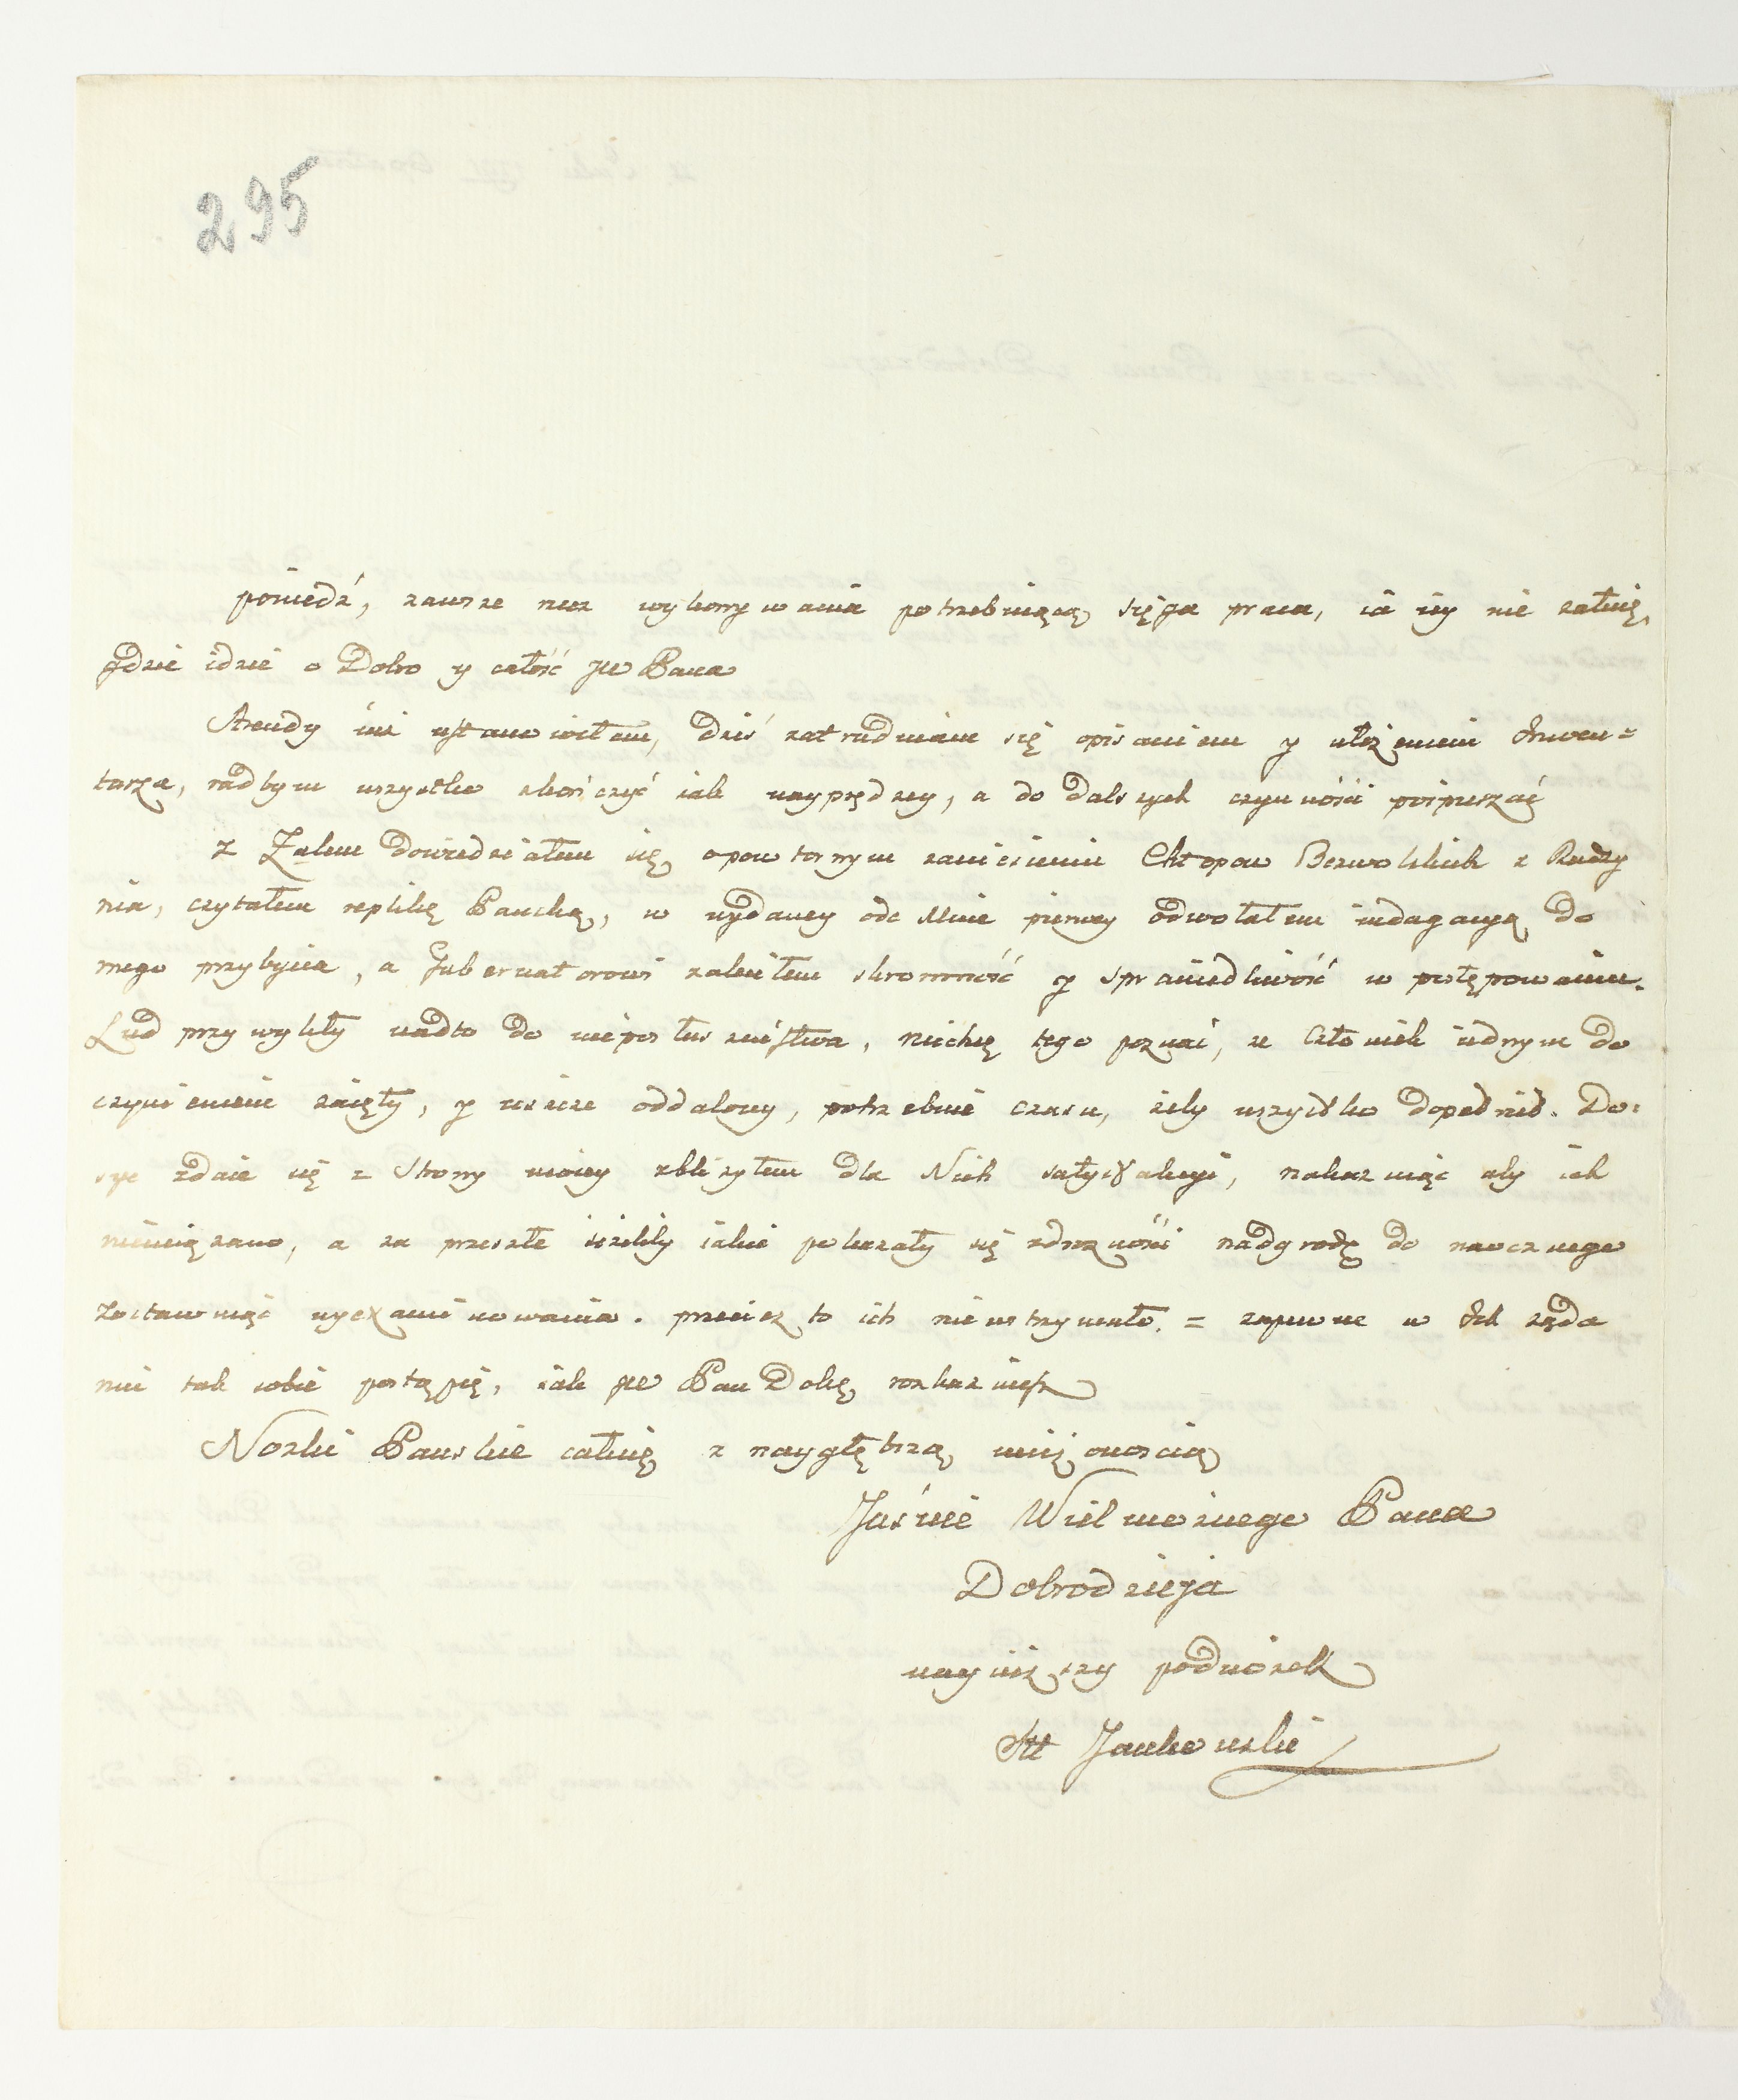 295
powiedź, zawsze rzecz wykonywania potrzebuiącą sięga praca, ia iey nie żałuię,
gdzie idzie o Dobro y całość JW Pana
Arendy iuż ustanowiłem, dziś zatrudniam się opisaniem y ułożeniem Inwen=
tarza, rad bym wszystko skończyć iak nayprędzey, a do dalszych czynności pośpieszać
z Żalem dowiedziałem się o powtornym zaniesieniu Chłopow Bezwolskich z Rudzy
nia, czytałem replikę Pańską, w wydaney ode Mnie pierwey odwołałem indagacyą do
mego przybycia, a Gubernatorowi zaleciłem skromność y sprawiedliwość w postępowaniu.
Lud przywykły nadto do nieposłuszeństwa, niechcę tego poznać, że Człowiek iednym do
czynieniem zaięty, y ieszcze oddalony, potrzebuie czasu, żeby wszystko dopełnił. Do=
syc zdaie się z Strony moiey zbliżyłem dla Nich satysfakcyi, nakazuiąc aby ich
nieuciążano, a za przeszłe ieżeliby iakie pokazały się zdrożności nadgrodę do naocznego
zostawuiąc wyexaminowania. przecież to ich niewstrzymało. = zapewne w Ich żąda
niu tak sobie postąpię, iak JW Pan Dobr. rozkażesz
Nożki Pańskie całuię z naygłębszą uniżonością
Jaśnie Wielmożnego Pana
Dobrodzieja
nayniższy podnóżek
Jankowski